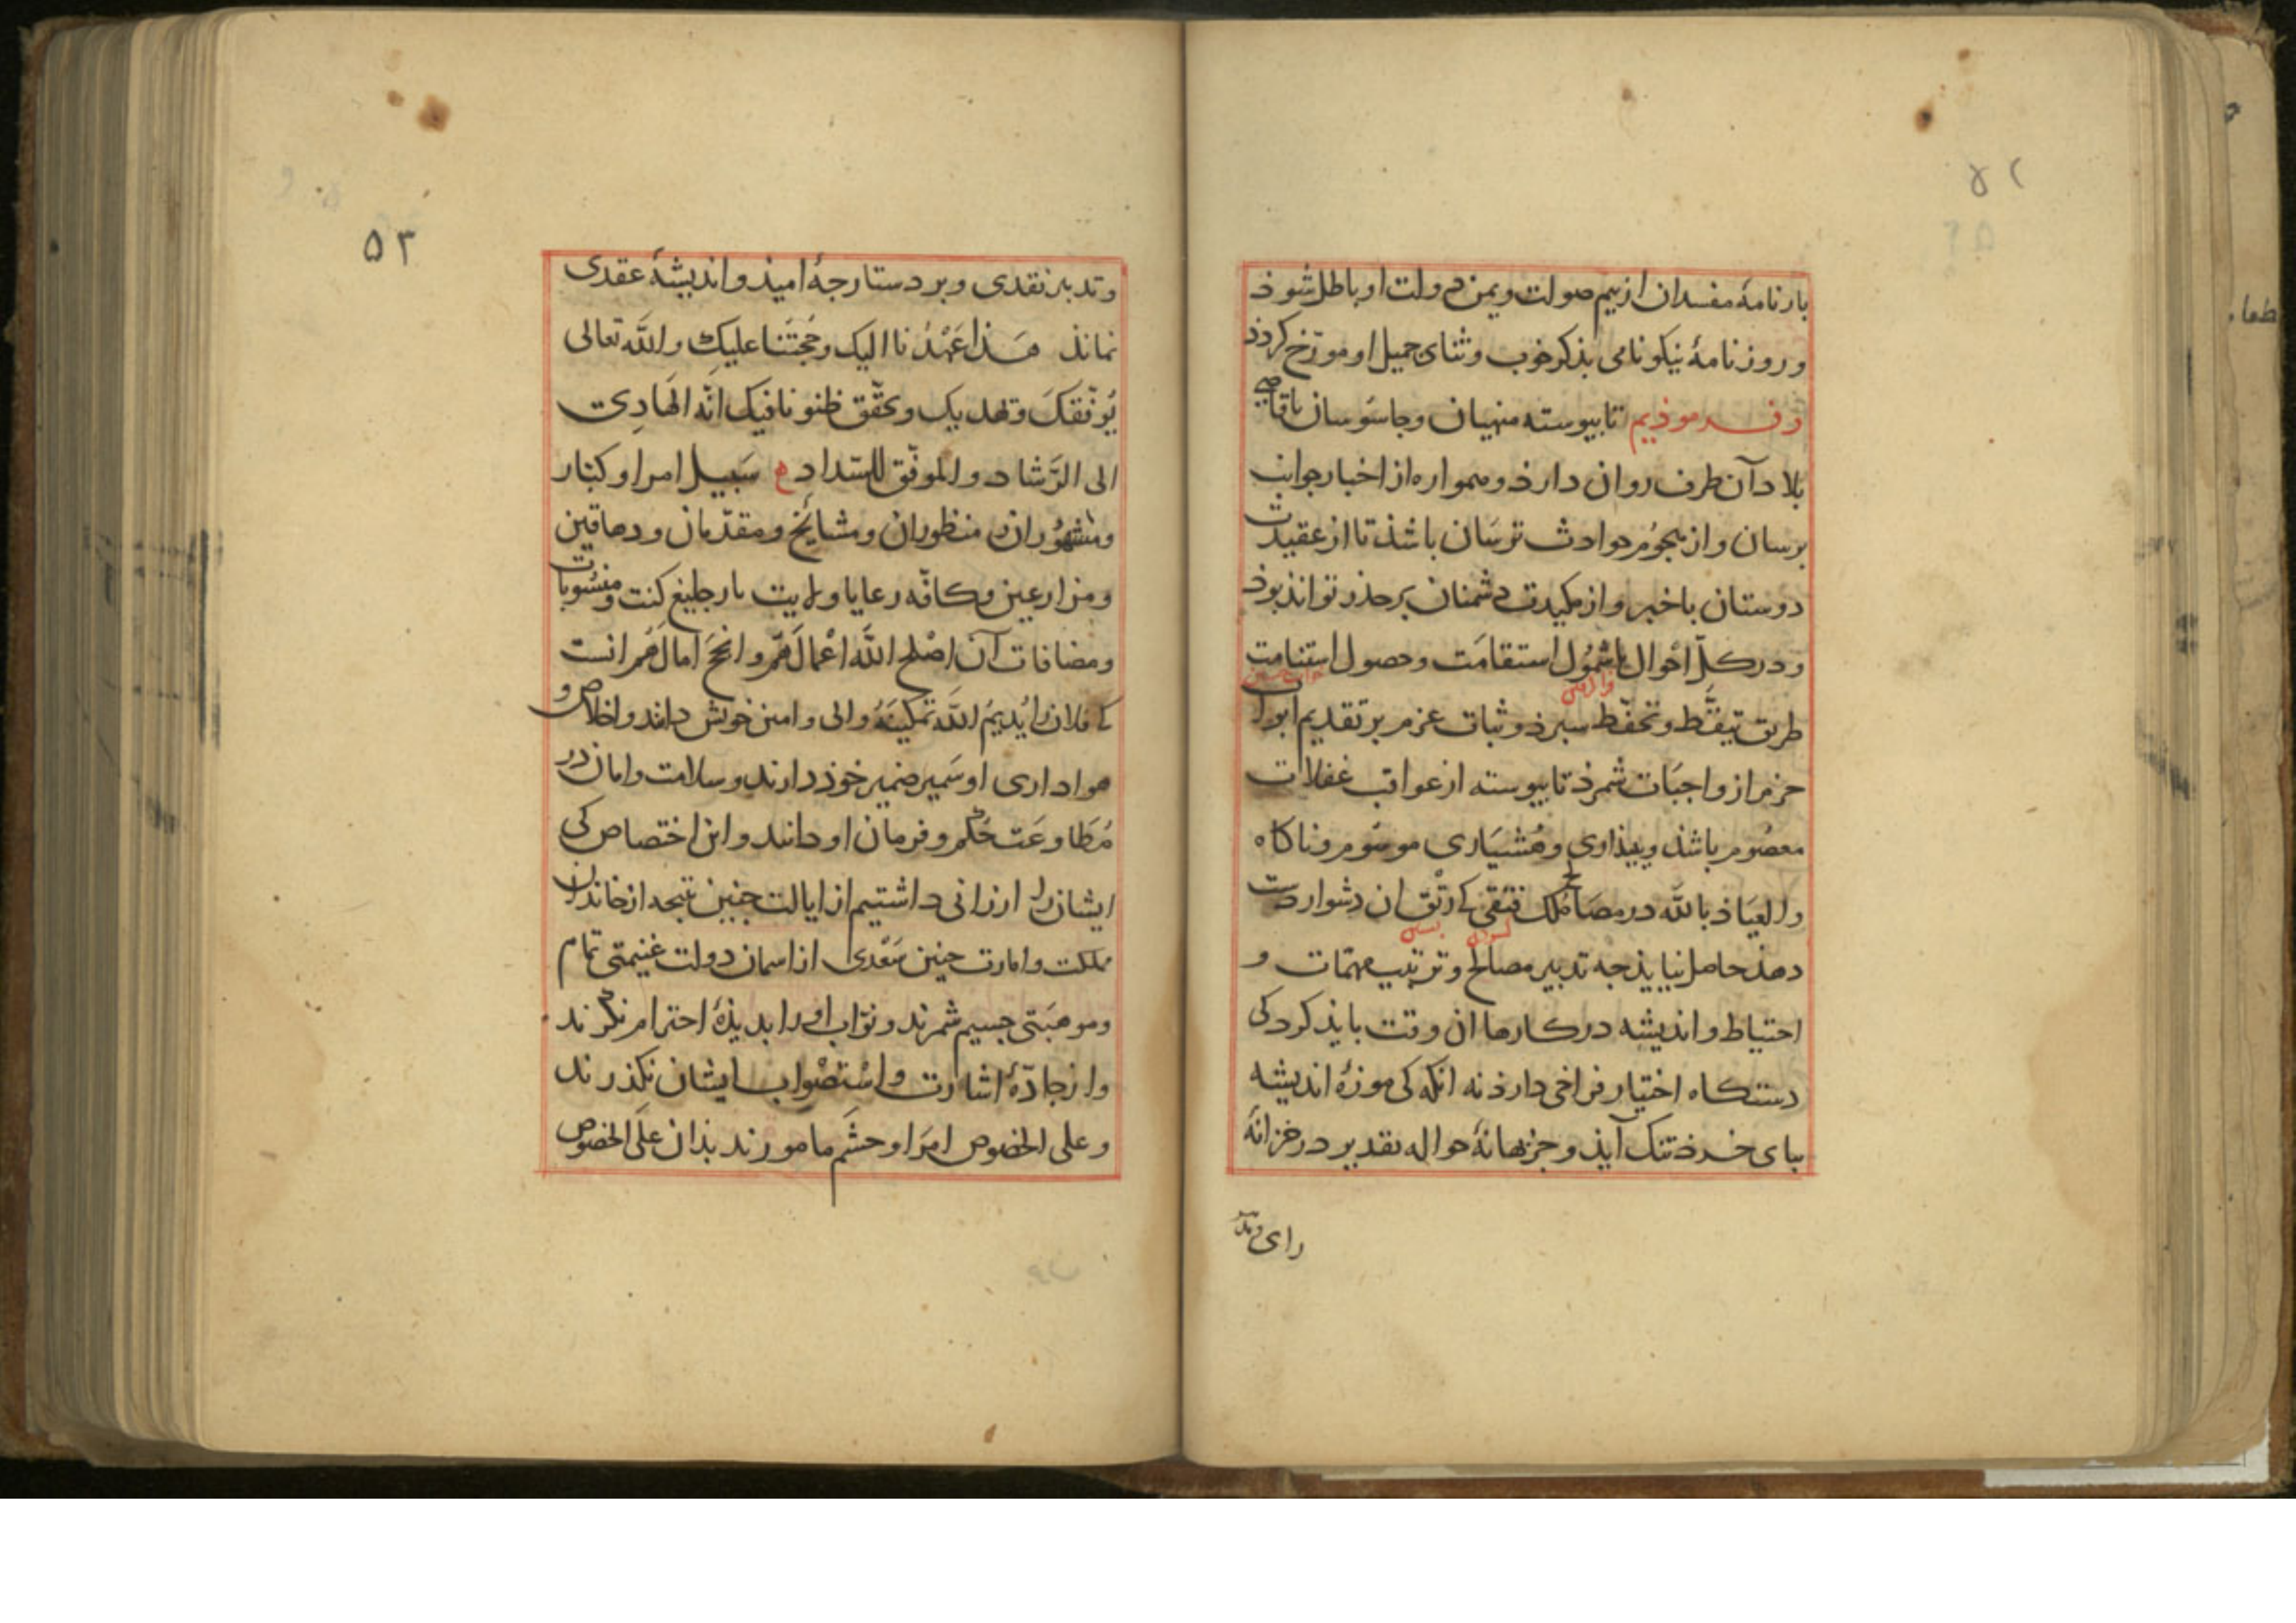 ۵۲
بارنامهٔ مفسدان از بیم صولت و یمن دولت او باطل شوذ
و روزنامهٔ نیکونامی بذکر خوب و ثنای جمیل او مورّخ کردذ
و فرموذیم تا پیوسته منهیان و جاسوسان باقاصی
بلاد آن طرف روان دارذ و همواره از اخبار جوانب
برسان و از هجوم حوادث ترسان باشذ تا از عقیدت
دوستان باخبر و از مکیدت دشمنان برحذر تواند بوذ
و در کلّ احوال باشمول استقامت و حصول استنامت
طریق تیقّظ و تحفّظ سپرذ و ثبات عزم بر تقدیم ابواب
حزم از واجبات شمرذ تا پیوسته از عواقب غفلات
معصوم باشذ و ببیذاری و هشیاری موسوم و ناکاه
والعیاذ بالله در مصالح ملک فتقی که رتق ان دشوار دست
دهذ حاصل نیایذ جه تدبیر مصالح و ترتیب مهمّات و
احتیاط و اندیشه در کارها ان وقت بایذ کرد کی
دستکاه اختیار فراخی دارذ نه انکه کی موزهٔ اندیشه
بپای خرذ تنک آیذ و جز بهانهٔ حواله بتقدیر در خزانهٔ
رای و تد
۵۳
و تدبیر نقدی و بر دستارجهٔ امیذ و اندیشهٔ عقدی
نماند هذا عَهْدُنا الیک و حُجّتنا علیک والله تعالی
یُوفّقکَ و یهدیک و یحقّق ظنوننا فیک انّه الهادی
الی الرّشاد و الموفّق للسّداد ه سبیل امرا و کبار
و مشهوران و منظوران و مشایخ و مقدّمان و دهاقین
و مزارعین و کافّه رعایا ولایت بارجلیغ کنت و منسوبات
و مضافات آن اصْلح اللّه اعْمالَهُم و انجحَ امالَهُم انست
که فلان را یُدیمُ اللّه تمکینَهُ والی و امین خویش دانند و اخلاص و
هواداری او سَمیر ضمیر خوذ دارند و سلامت و امان در
مُطاوعَت حُکم و فرمان او دانند و این اختصاص کی
ایشان را ارزانی داشتیم از ایالت جنین نتیجه از خاندان
مملکت و امارت جنین سَعْدی از اسمان دولت غنیمتی تمام
و موهبَتی جسیم شمرند و نوّاب او را بدیذهٔ احترام نکرند
و از جادّهٔ اشارت و اسْتصْواب ایشان نکذرند
و علی الخصوص امَرا و حشَم ما مامورند بذان علَی الخصُوص